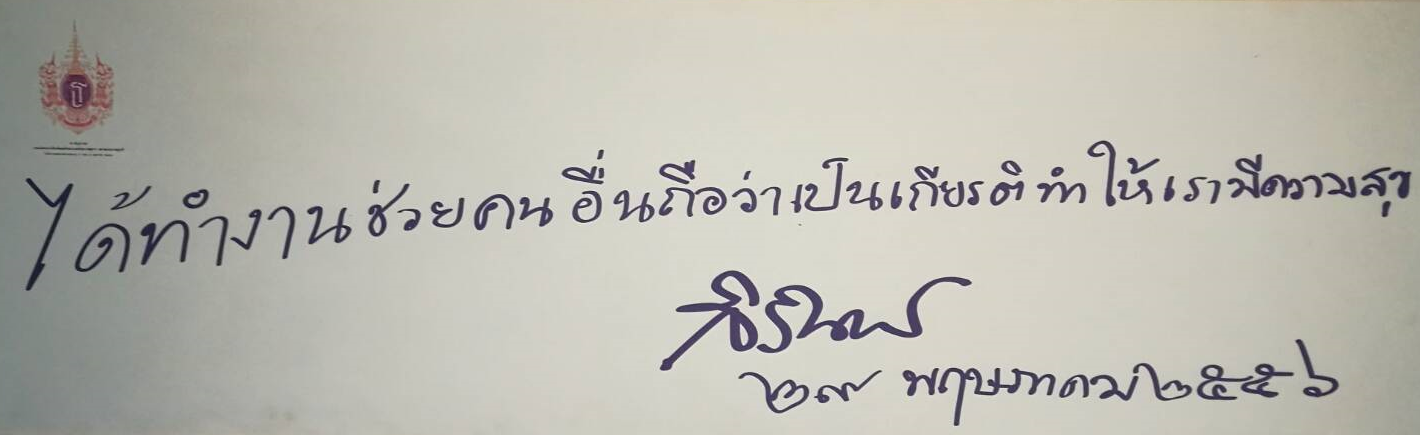 ได้ทำงานช่วยคนอื่นถือว่าเป็นเกียรติทำให้เรามีความสุข
สิรินธร
๒๙ พฤษภาคม ๒๕๕๖